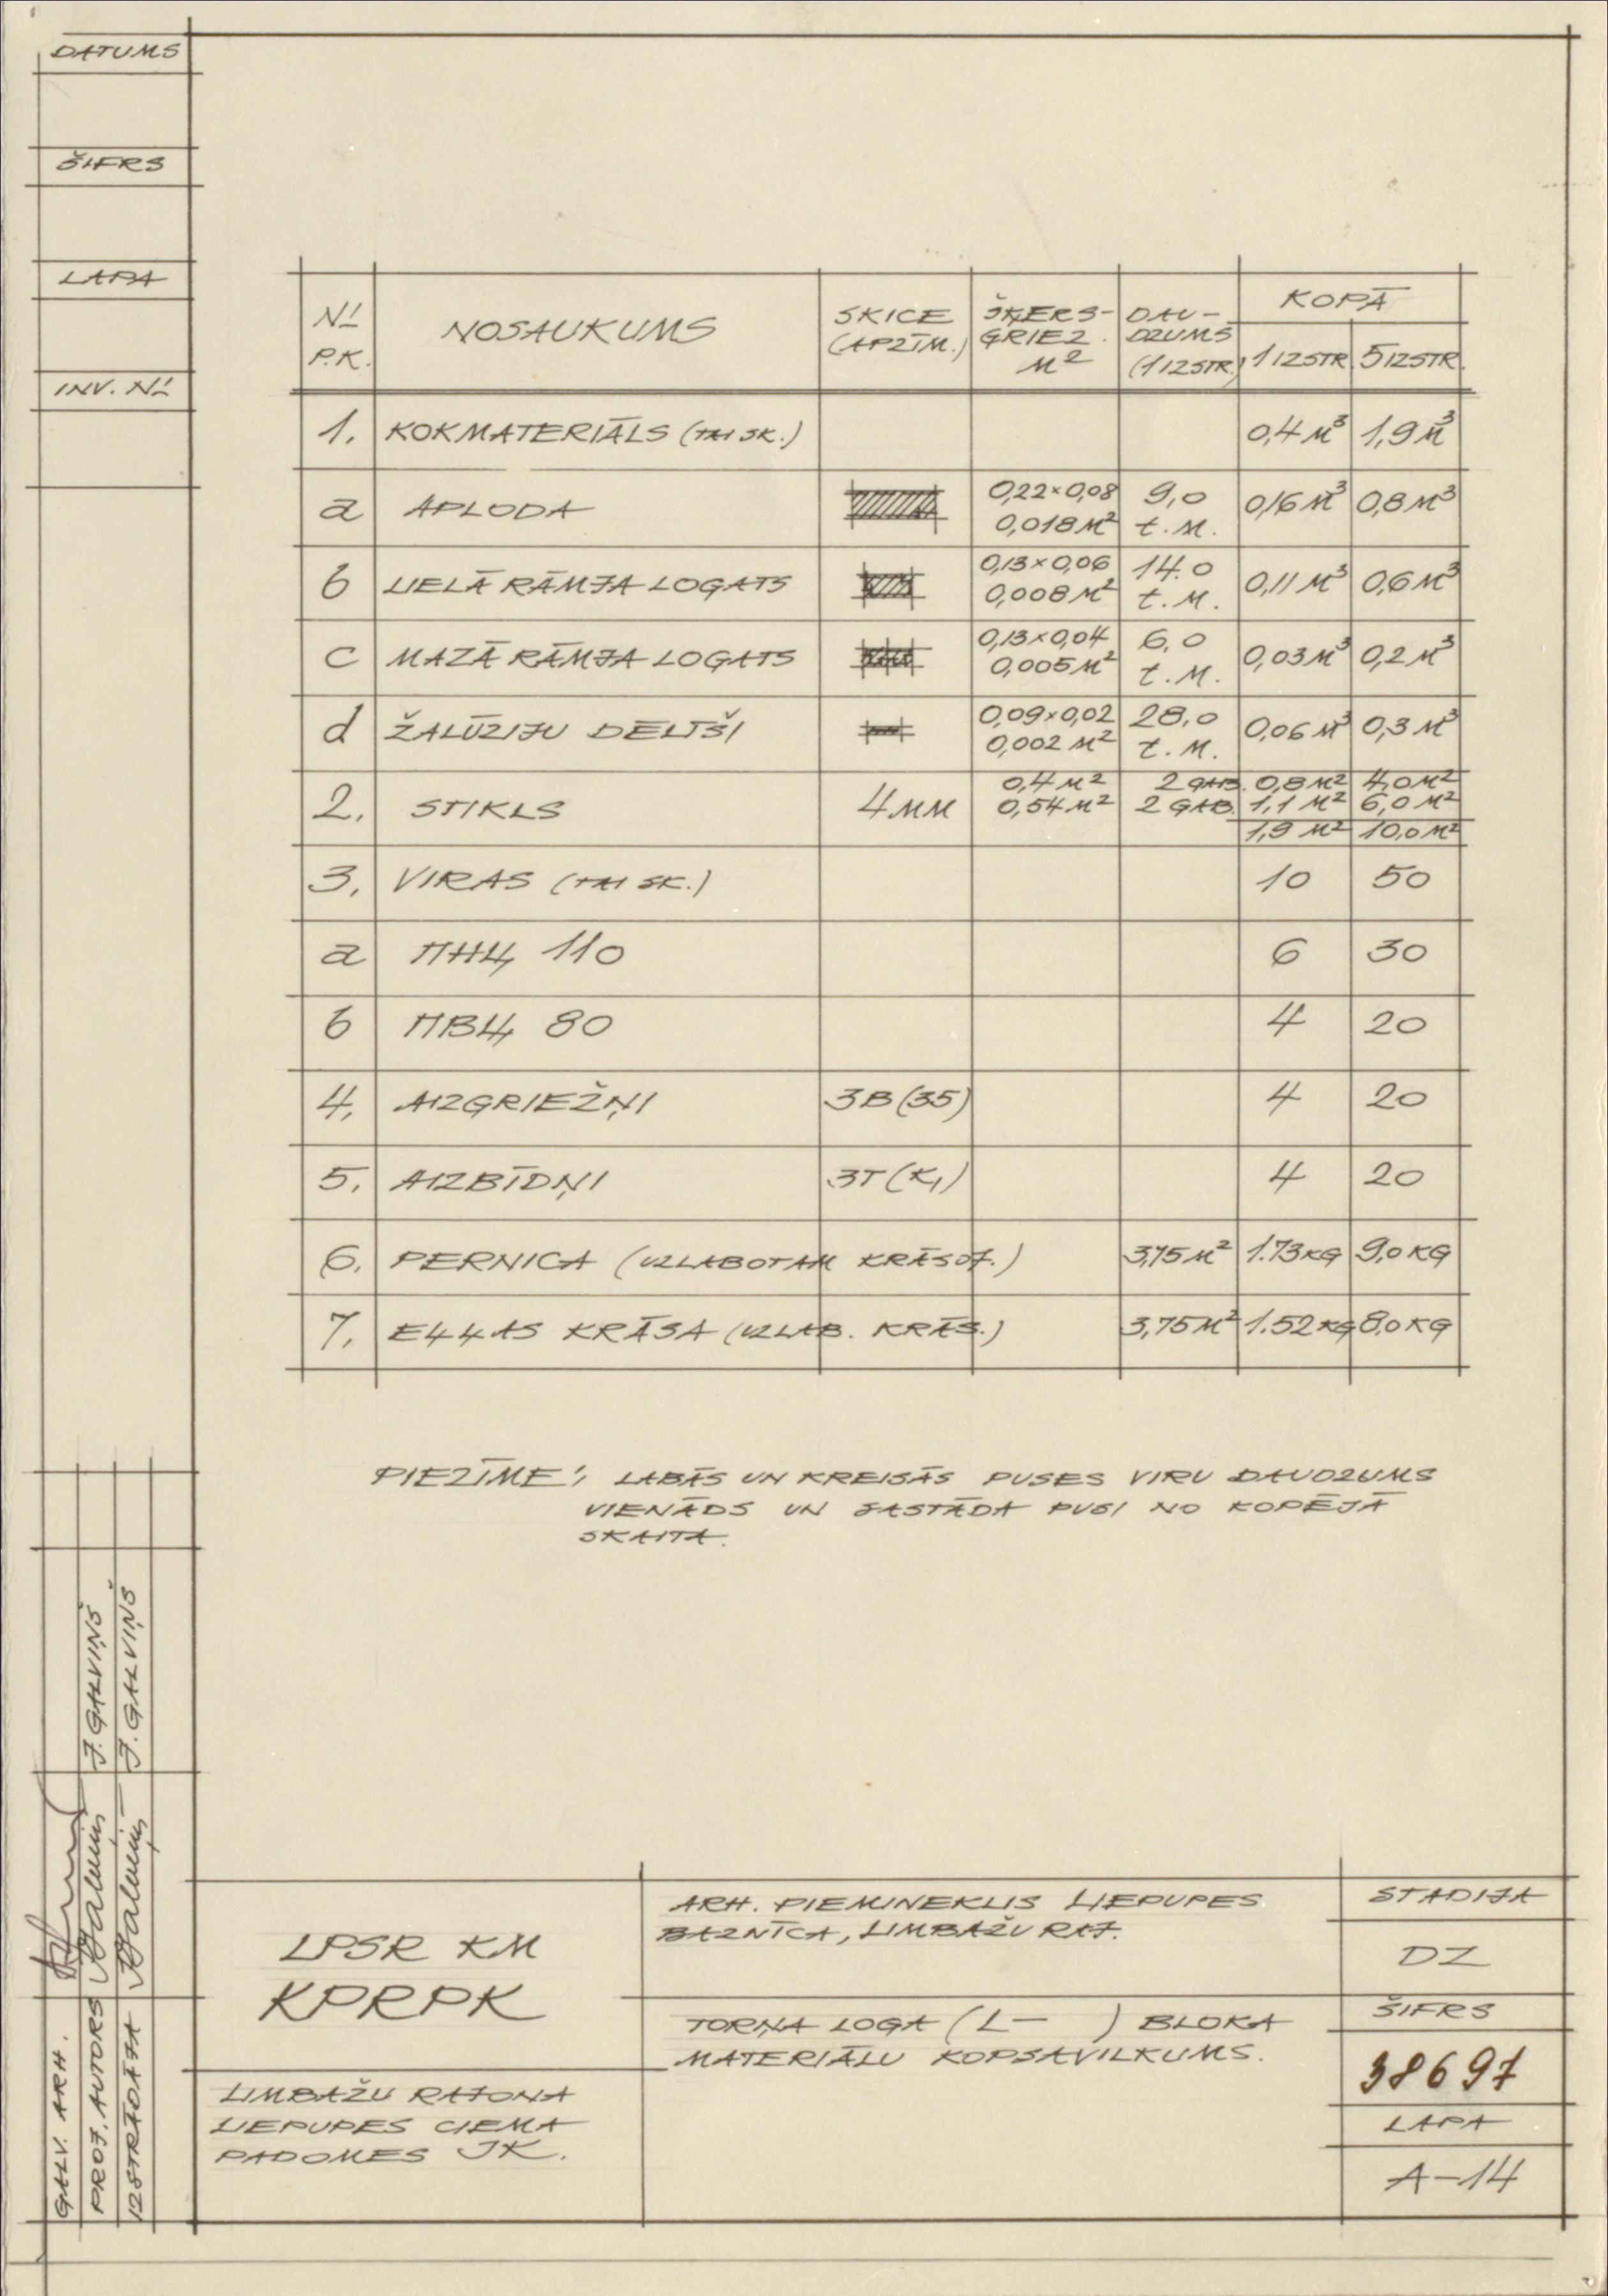 DATUMS
ŠIFRS
LAPA
INV. №
№ P.K. NOSAUKUMS SKICE (APZĪM.) ŠĶERS-GRIEZ. M² DAU-DZUMS (1 IZSTR.) KOPĀ 1 IZSTR. 5 IZSTR.
1. KOKMATERIĀLS (TAI SK.) 0,4 M³ 1,9 M³
a APLODA 0,22×0,08 0,018 M² 9,0 t.M. 0,16 M³ 0,8 M³
b LIELĀ RĀMJA LOGATS 0,13×0,06 0,008 M² 14.0 t.M. 0,11 M³ 0,6 M³
c MAZĀ RĀMJA LOGATS 0,13×0,04 0,005 M² 6,0 t.M. 0,03 M³ 0,2 M³
d ŽALŪZIJU DĒLĪŠI 0,09×0,02 0,002 M² 28,0 t.M. 0,06 M³ 0,3 M³
0,4 M² 2 GAB. 0,8 M² 4,0 M²
2. STIKLS 4 MM 0,54 M² 2 GAB. 1,1 M² 6,0 M²
1,9 M² 10,0 M²
3. VIRAS (TAI SK.) 10 50
a ПНЦ 110 6 30
b ПВЦ 80 4 20
4. AIZGRIEŽŅI ЗВ (35) 4 20
5. AIZBĪDŅI ЗТ (K1) 4 20
6. PERNICA (UZLABOTAM KRĀSOJ.) 3,75 M² 1.73 KG 9,0 KG
7. EĻĻAS KRĀSA (UZLAB. KRĀS.) 3,75 M² 1.52 KG 8,0 KG
PIEZĪME: LABĀS UN KREISĀS PUSES VIRU DAUDZUMS
VIENĀDS UN SASTĀDA PUSI NO KOPĒJĀ
SKAITA.
GALV. ARH.
PROJ. AUTORS J. GALVIŅŠ
IZSTRĀDĀJA J. GALVIŅŠ
LPSR KM
KPRPK
LIMBAŽU RAJONA
LIEPUPES CIEMA
PADOMES IK.
ARH. PIEMINEKLIS LIEPUPES
BAZNĪCA, LIMBAŽU RAJ.
TORŅA LOGA (L- ) BLOKA
MATERIĀLU KOPSAVILKUMS.
STADIJA
DZ
ŠIFRS
38697
LAPA
A-14